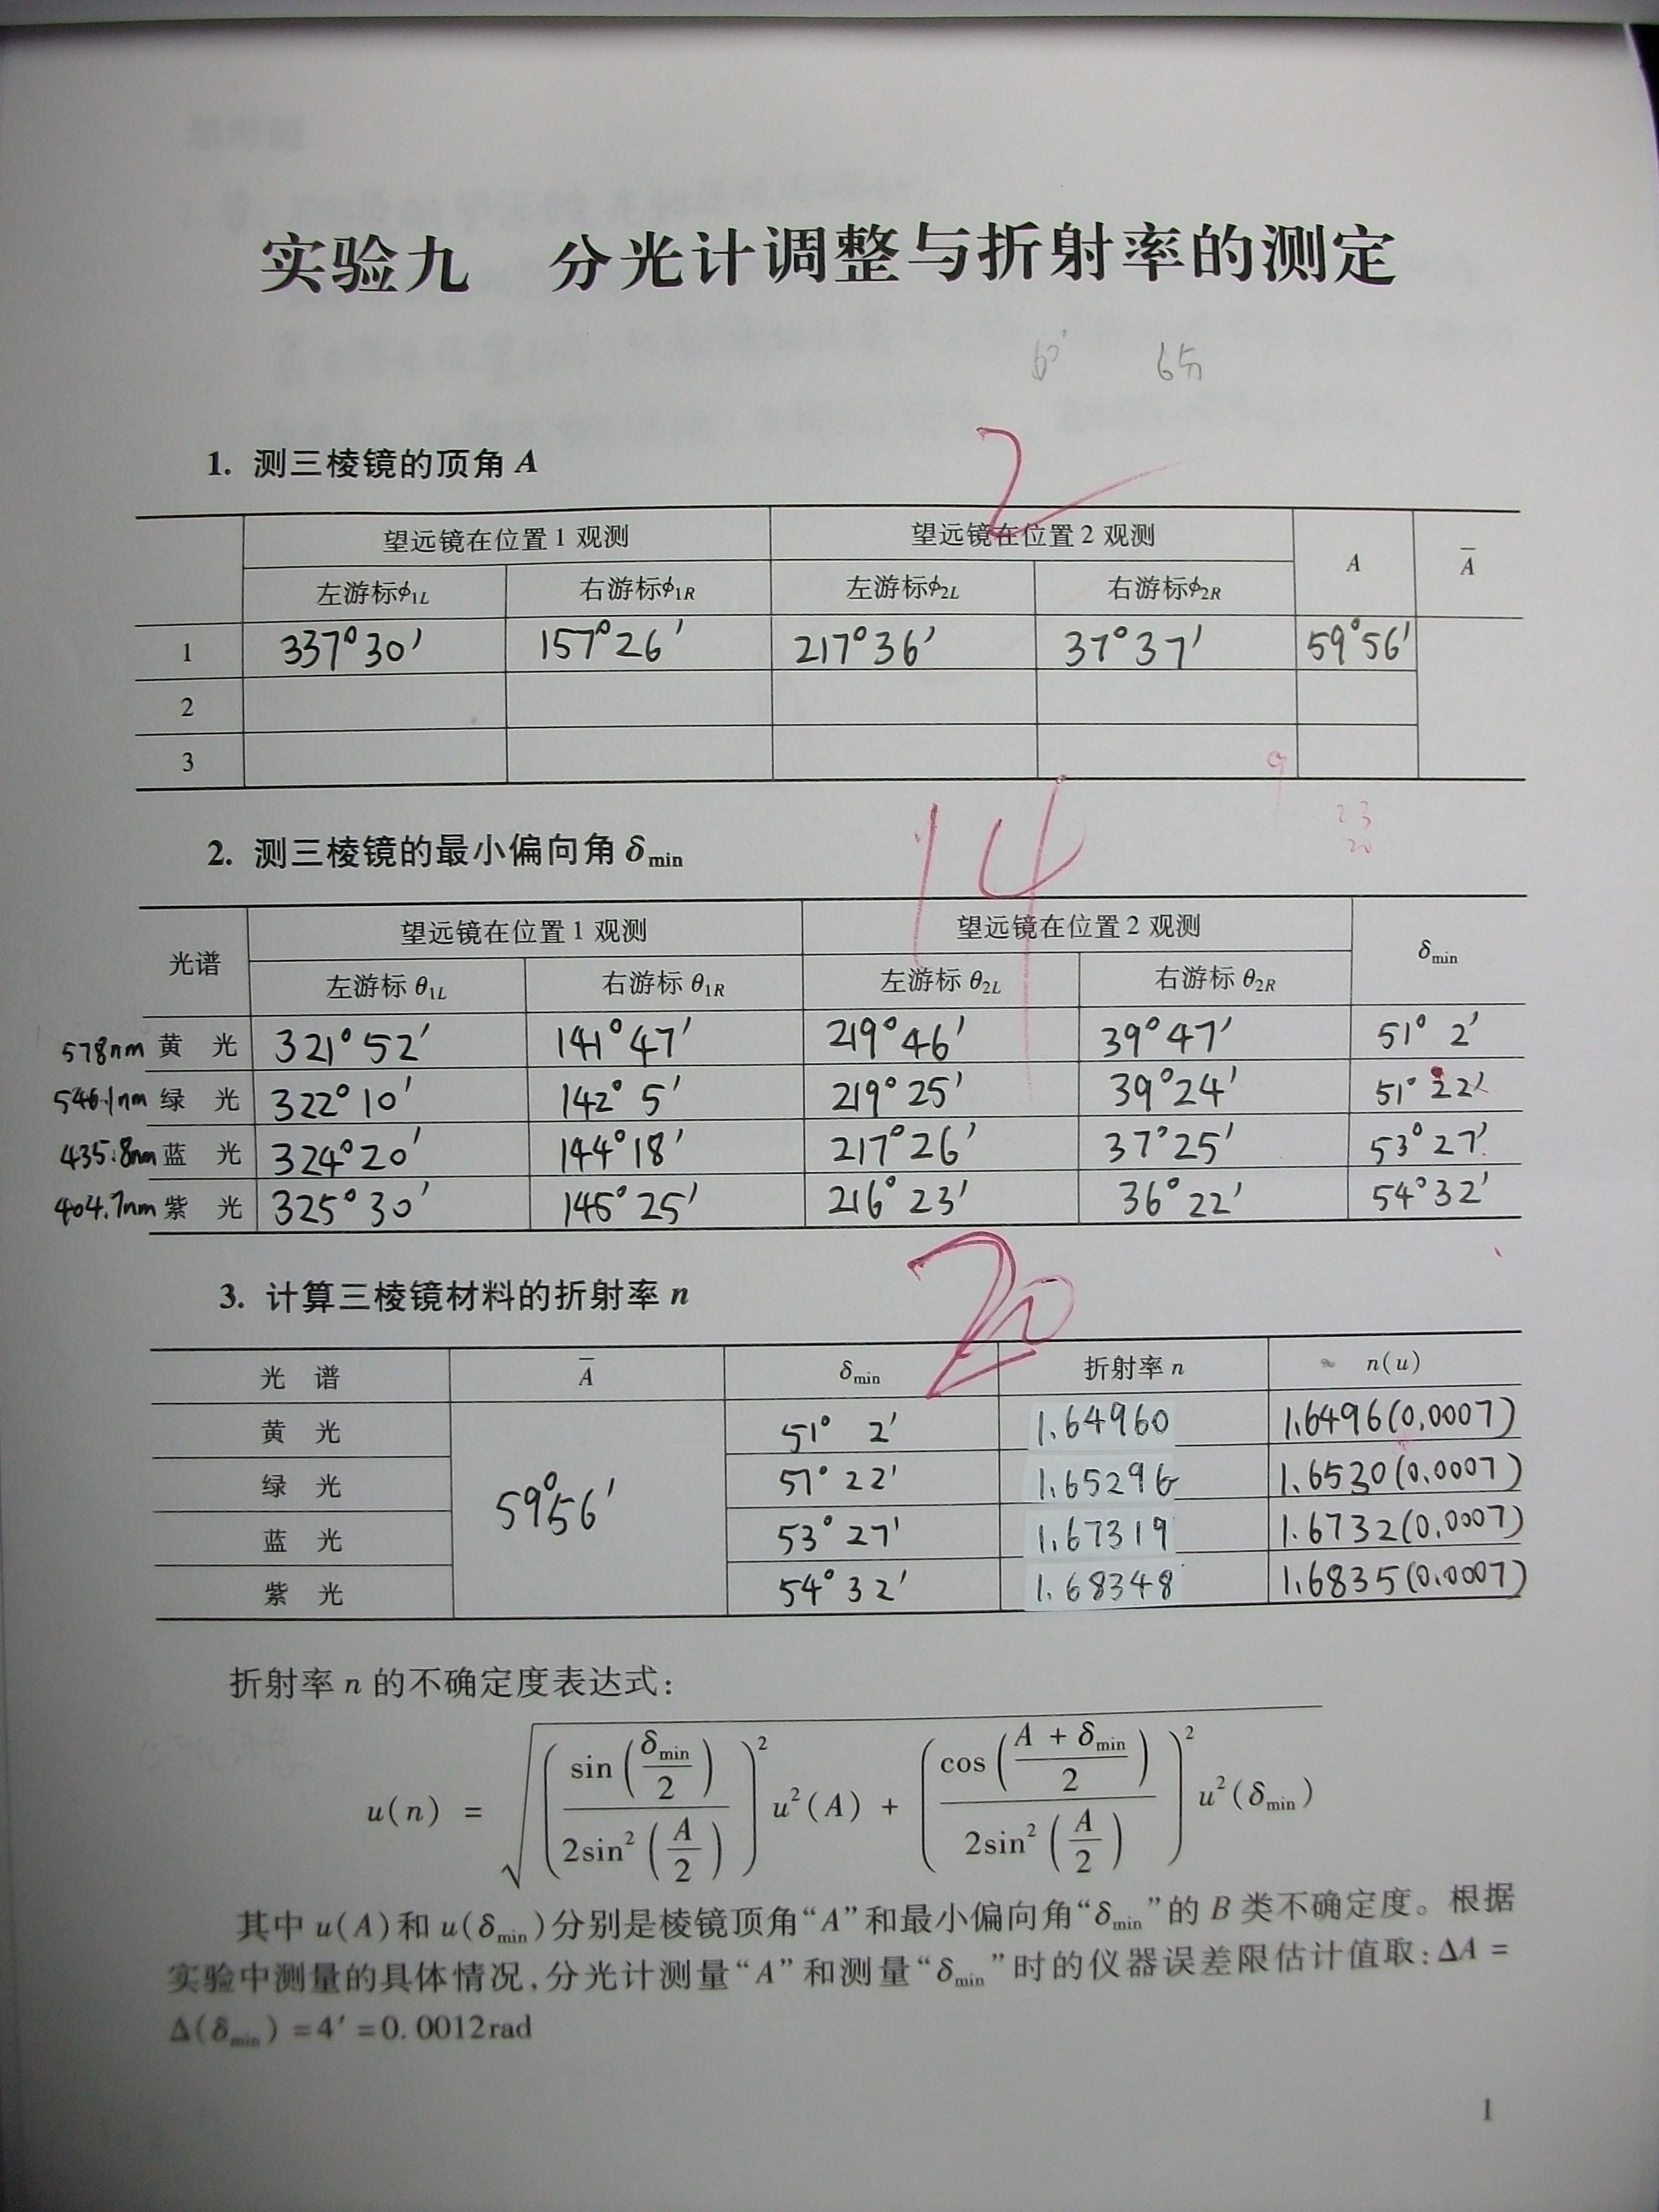 实验九 分光计调整与折射率的测定
60° 6分
1. 测三棱镜的顶角 A
2
望远镜在位置 1 观测 望远镜在位置 2 观测 A A̅
左游标ϕ1L 右游标ϕ1R 左游标ϕ2L 右游标ϕ2R
1 337°30′ 157°26′ 217°36′ 37°37′ 59°56′
2
3
9
23
20
2. 测三棱镜的最小偏向角 δmin
14
光谱 望远镜在位置 1 观测 望远镜在位置 2 观测 δmin
左游标 θ1L 右游标 θ1R 左游标 θ2L 右游标 θ2R
578nm 黄 光 321°52′ 141°47′ 219°46′ 39°47′ 51° 2′
546.1nm 绿 光 322°10′ 142°5′ 219°25′ 39°24′ 51°22′
435.8nm 蓝 光 324°20′ 144°18′ 217°26′ 37°25′ 53°27′
404.7nm 紫 光 325°30′ 145°25′ 216°23′ 36°22′ 54°32′
3. 计算三棱镜材料的折射率 n
20
光 谱 A̅ δmin 折射率 n n(u)
黄 光 59°56′ 51° 2′ 1.64960 1.6496(0.0007)
绿 光 51°22′ 1.65296 1.6530(0.0007)
蓝 光 53°27′ 1.67319 1.6732(0.0007)
紫 光 54°32′ 1.68348 1.6835(0.0007)
折射率 n 的不确定度表达式:
u(n) = √((sin(δmin/2) / 2sin²(A/2))² u²(A) + (cos((A + δmin)/2) / 2sin²(A/2))² u²(δmin))
其中 u(A)和 u(δmin)分别是棱镜顶角“A”和最小偏向角“δmin”的 B 类不确定度。根据
实验中测量的具体情况,分光计测量“A”和测量“δmin”时的仪器误差限估计值取:ΔA =
Δ(δmin)=4′=0.0012rad
1